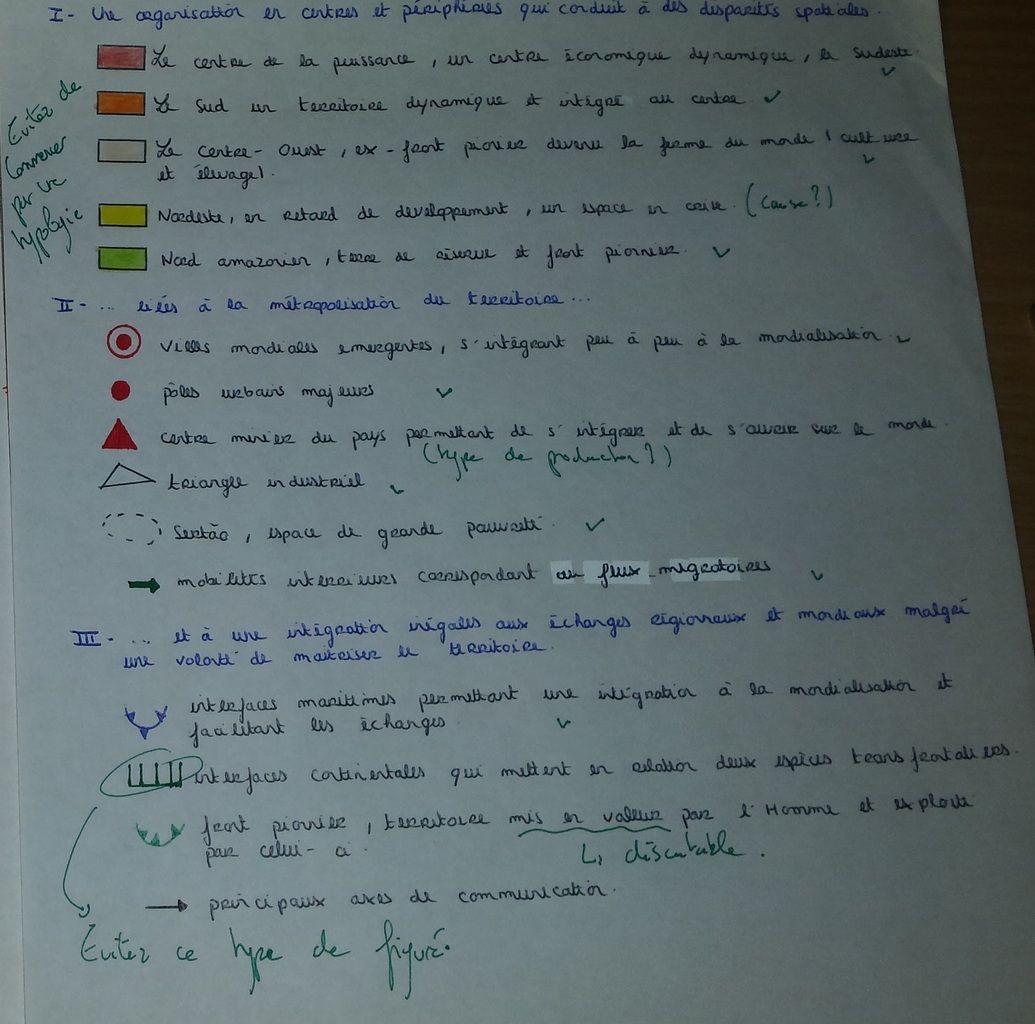 I- Une organisation en centres et périphéries qui conduit à des disparités spatiales.
Le centre de la puissance, un centre économique dynamique, le sudeste.
Le Sud un territoire dynamique et intégré au centre
Le Centre-Ouest, ex-front pionier devenu la ferme du monde (culture
et élevage).
Eviter de
commencer
par une
typologie
Nordeste, en retard de developpement, un espace en crise. (cause?)
Nord amazonien, terre de réserve et front pionnier.
II- ... liées à la métropolisation du territoire...
Villes mondiales emergentes, s'intégrant peu à peu à la mondialisation
pôles urbains majeurs
centre minier du pays permettant de s'intégrer et de s'ouvrir sur le monde.
(type de production?)
triangle industriel
Sertão, espace de grande pauvreté
mobilités interieurs correspondant au flux migratoires
III- ... et à une intégration inégales aux échanges régionnaux et mondiaux malgré
une volonté de maitriser le territoire.
interfaces maritimes permettant une intégration à la mondialisation et
facilitant les échanges
interfaces continentales qui mettent en relation deux espaces transfrontaliers.
front pionnier, territoire mis en valeur par l'Homme et exploité
par celui-ci.
L, discutable.
principaux axes de communication.
Evitez ce type de figuré.